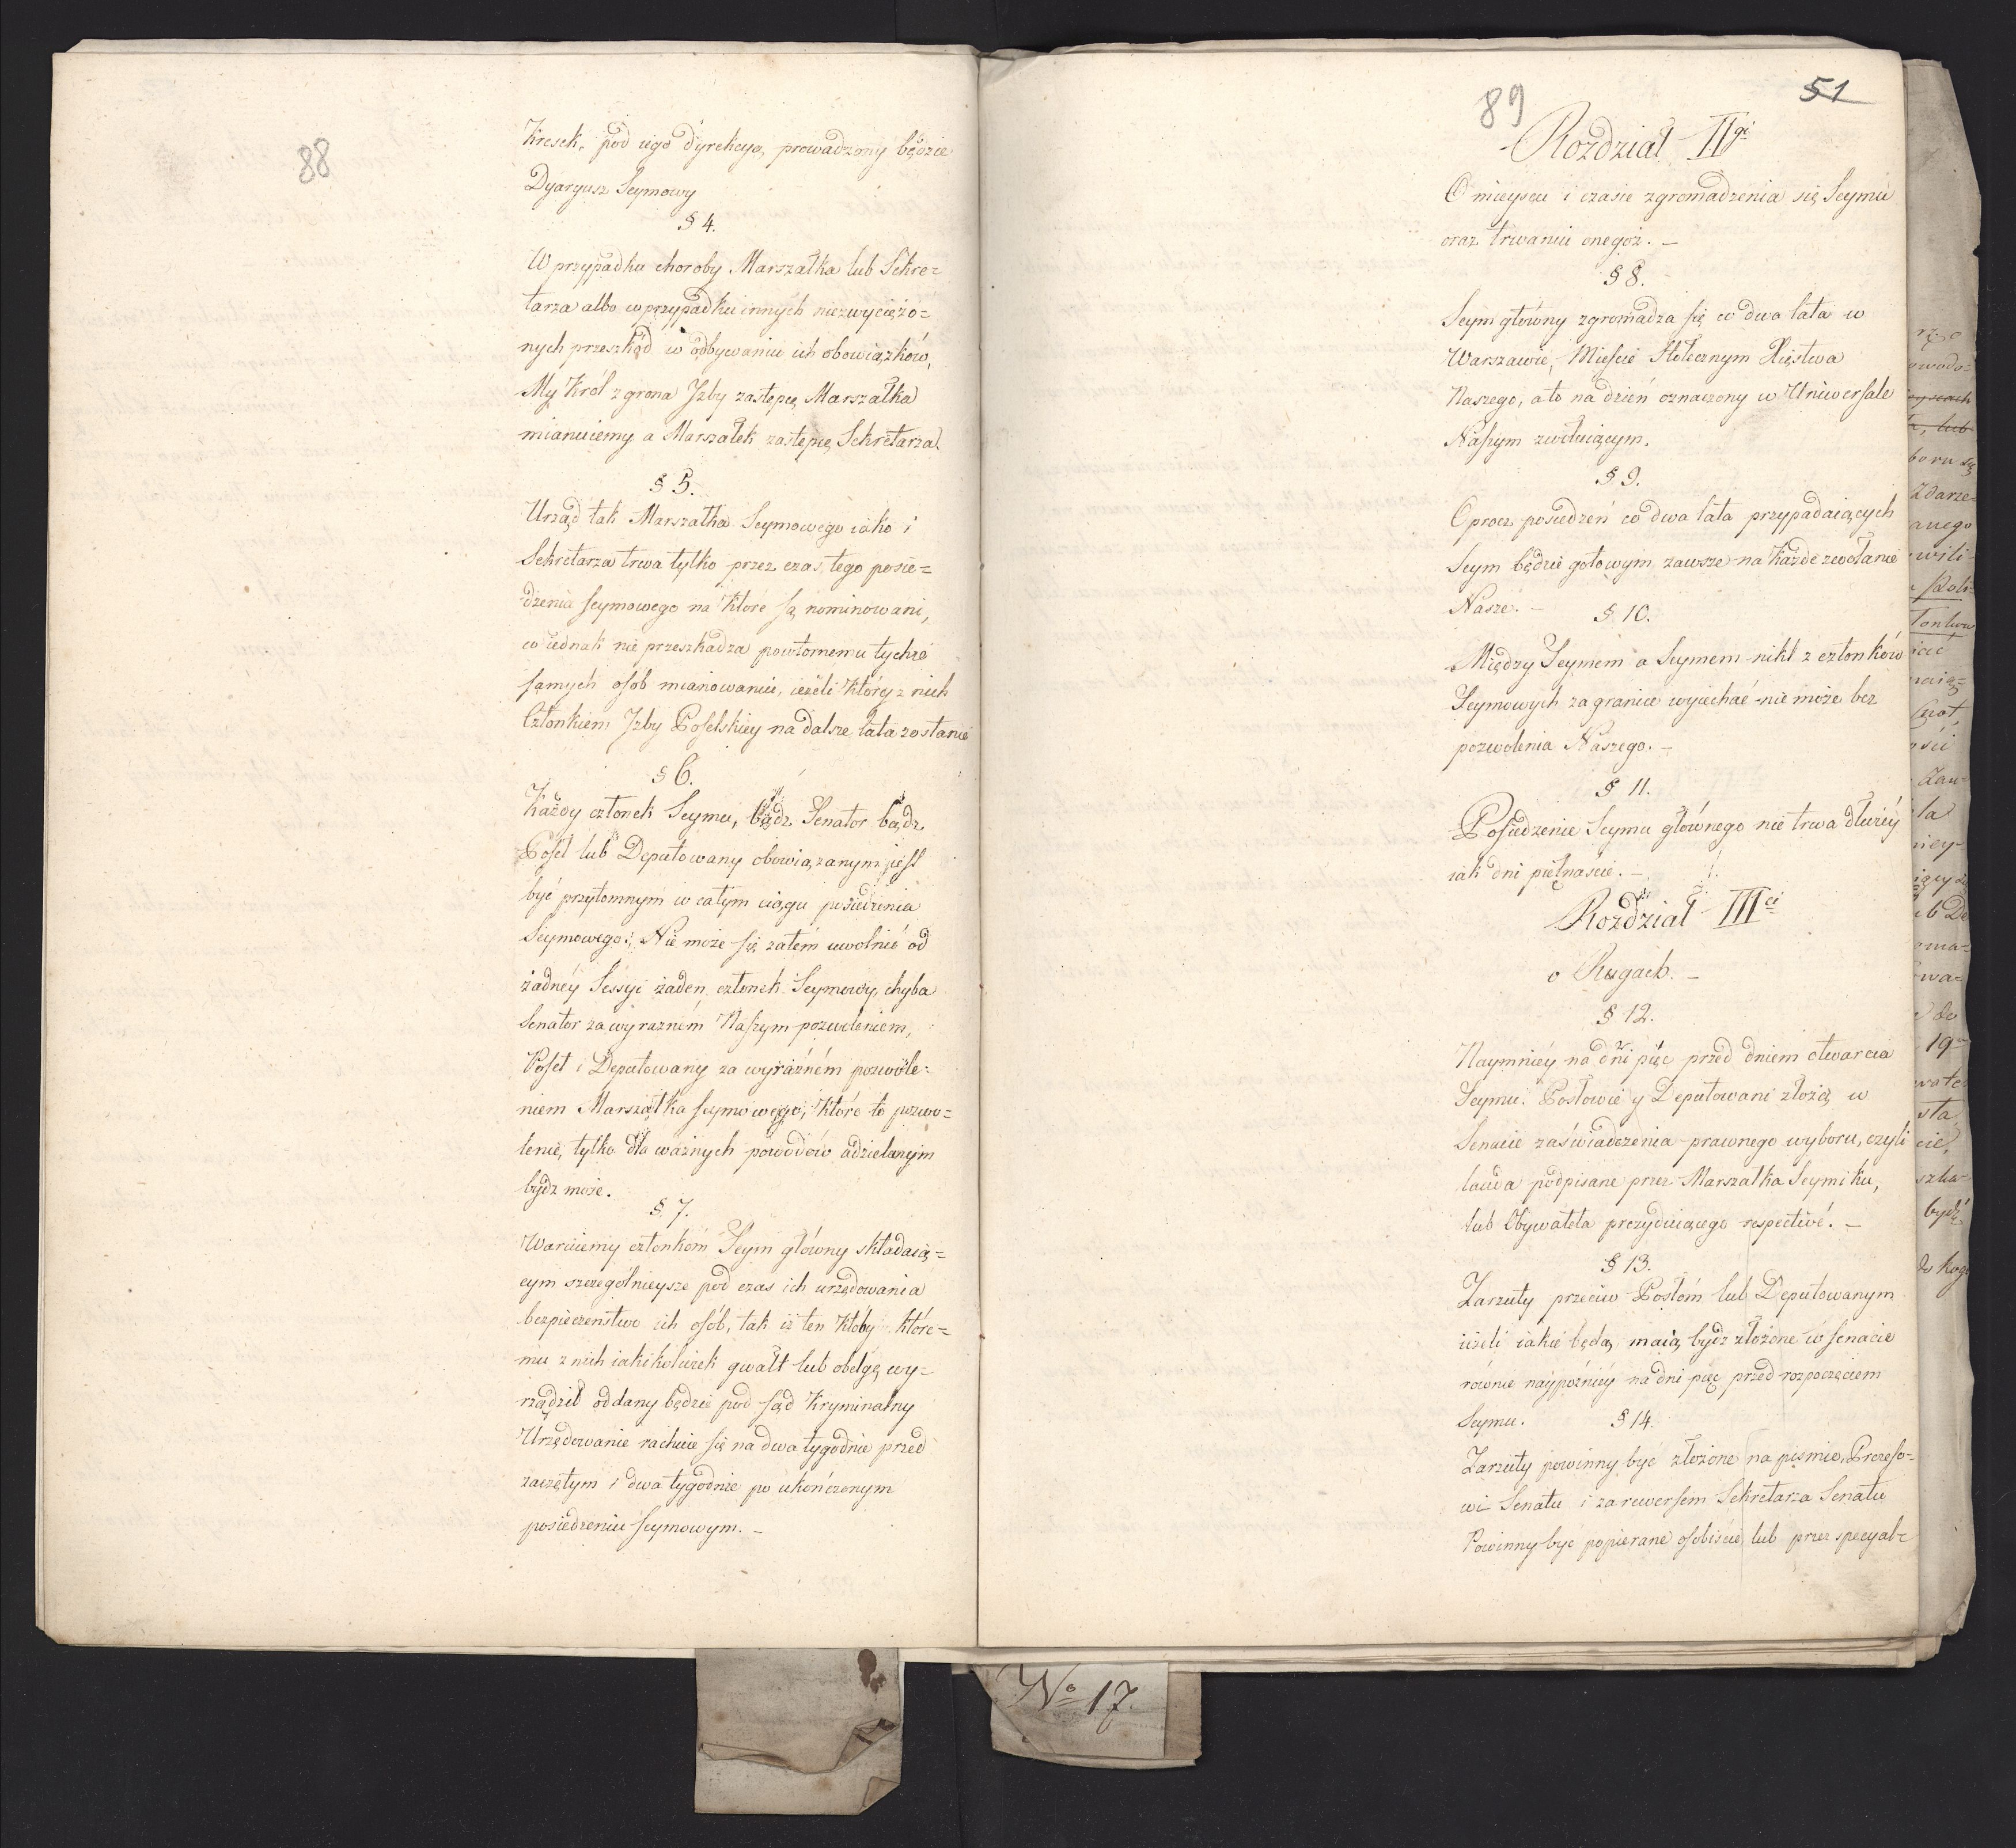 88
Kresek, pod iego dyrekcyą, prowadzony będzie
Dyaryusz Seymowy
§ 4.
W przypadku choroby Marszałka lub Sekre=
tarza albo w przypadku innych niezwyciężo=
nych przeszkód w odbywaniu ich obowiązków,
My Król z grona Jzby zastępcę Marszałka
mianuiemy a Marszałek zastępcę Sekretarza.
§ 5.
Urząd tak Marszałka Seymowego iako i
Sekretarza trwa tylko przez czas tego posie=
dzenia seymowego na które są nominowani,
co iednak nie przeszkadza powtornemu tychże
samych osób mianowaniu, ieżeli który z nich
Członkiem Jzby Poselskiey na dalsze lata zostanie
§ 6.
Każdy członek Seymu, bądz Senator bądz
Poseł lub Deputowany obowiązanym jest
być przytomnym w całym ciągu posiedzenia
Seymowego: Nie może się zatém uwolnić od
żadnéy Sessyi żaden członek Seymowy, chyba
Senator za wyraźném Naszym pozwoleniem,
Poseł i Deputowany za wyraźném pozwole=
niem Marszałka seymowego, które to pozwo=
lenie, tylko dla ważnych powodów udzielanym
bydz może.
§. 7.
Waruiemy członkom Seym główny składaią=
cym szczególnieysze pod czas ich urzędowania
bezpieczenstwo ich osób, tak iż ten któby które=
mu z nich iakikolwiek gwałt lub obelgę wy=
rządził oddany będzie pod sąd Kryminalny
Urzędowanie rachuie się na dwa tygodnie przed
zaczętym i dwa tygodnie po ukończonym
posiedzeniu seymowym. –
89
51
Rozdział IIgi
O mieyscu i czasie zgromadzenia się Seymu
oraz trwaniu onegoż. –
§ 8.
Seym główny zgromadza się co dwa lata w
Warszawie, Mieście Stołecznym Xięstwa
Naszego, a to na dzień oznaczony w Uniwersale
Naszym zwołuiącym.
§ 9.
Oprocz posiedzeń co dwa lata przypadaiących
Seym będzie gotowym zawsze na każde zwołanie
Nasze. –
§ 10.
Między Seymem a Seymem nikt z członków
Seymowych za granice wyiechać nie może bez
pozwolenia Naszego. –
§ 11.
Posiedzenie Seymu głównego nie trwa dłużéy
iak dni piętnaście. –
Rozdział IIIci
o Rugach. –
§ 12.
Naymniéy na dni pięc przed dniem otwarcia
Seymu. Posłowie y Deputowani złożą w
Senacie zaświadczenia prawnego wyboru, czyli
lauda podpisane przez Marszałka Seymiku,
lub Obywatela prezyduiącego respectivé. –
§ 13.
Zarzuty przeciw Posłóm lub Deputowanym
ieżeli iakie będą, maią bydz złożone w senacie
równie naypóźniéy na dni pięc przed rozpoczęciem
Seymu.
§ 14.
Zarzuty powinny być złożone na pismie, Prezeso=
wi Senatu i za rewersem Sekretarza Senatu
Powinny być popierane osobiście lub przez specyal=
No 17.